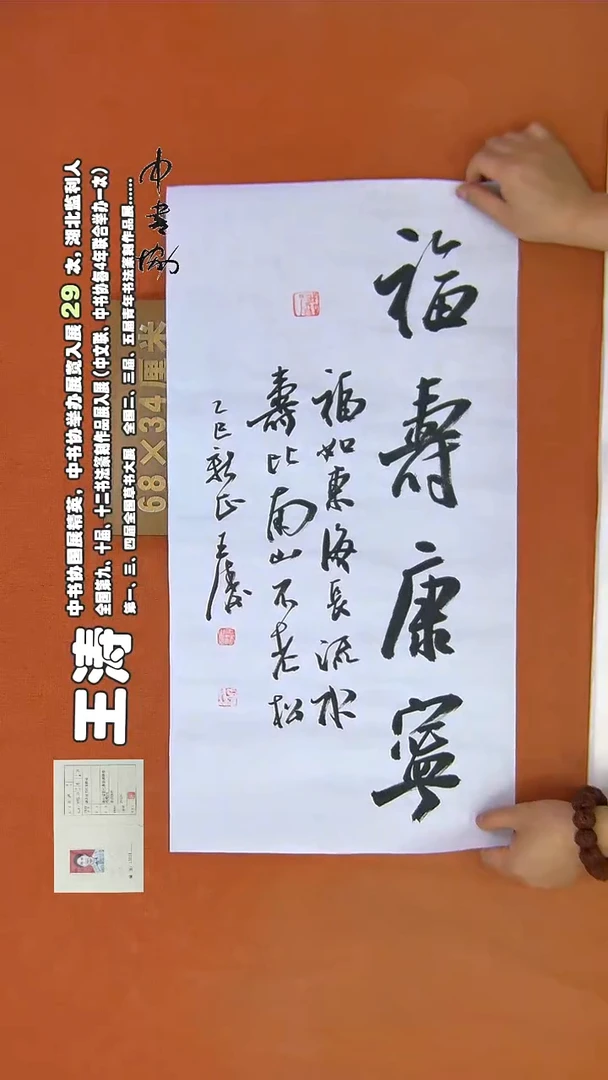 福壽康寧
福如東海長流水
壽比南山不老松
乙巳新正 王濤
中书协
王涛
中书协国展精英，中书协举办展览入展 29 次，湖北监利人
全国第九、十届、十二书法篆刻作品展入展（中文联、中书协每4年联合举办一次）
第一、三、四届全国草书大展 全国二、三届、五届青年书法篆刻作品展......
68×34厘米